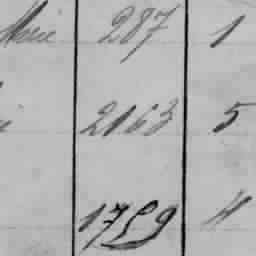 Marie 287 1
2163 5
1759 4